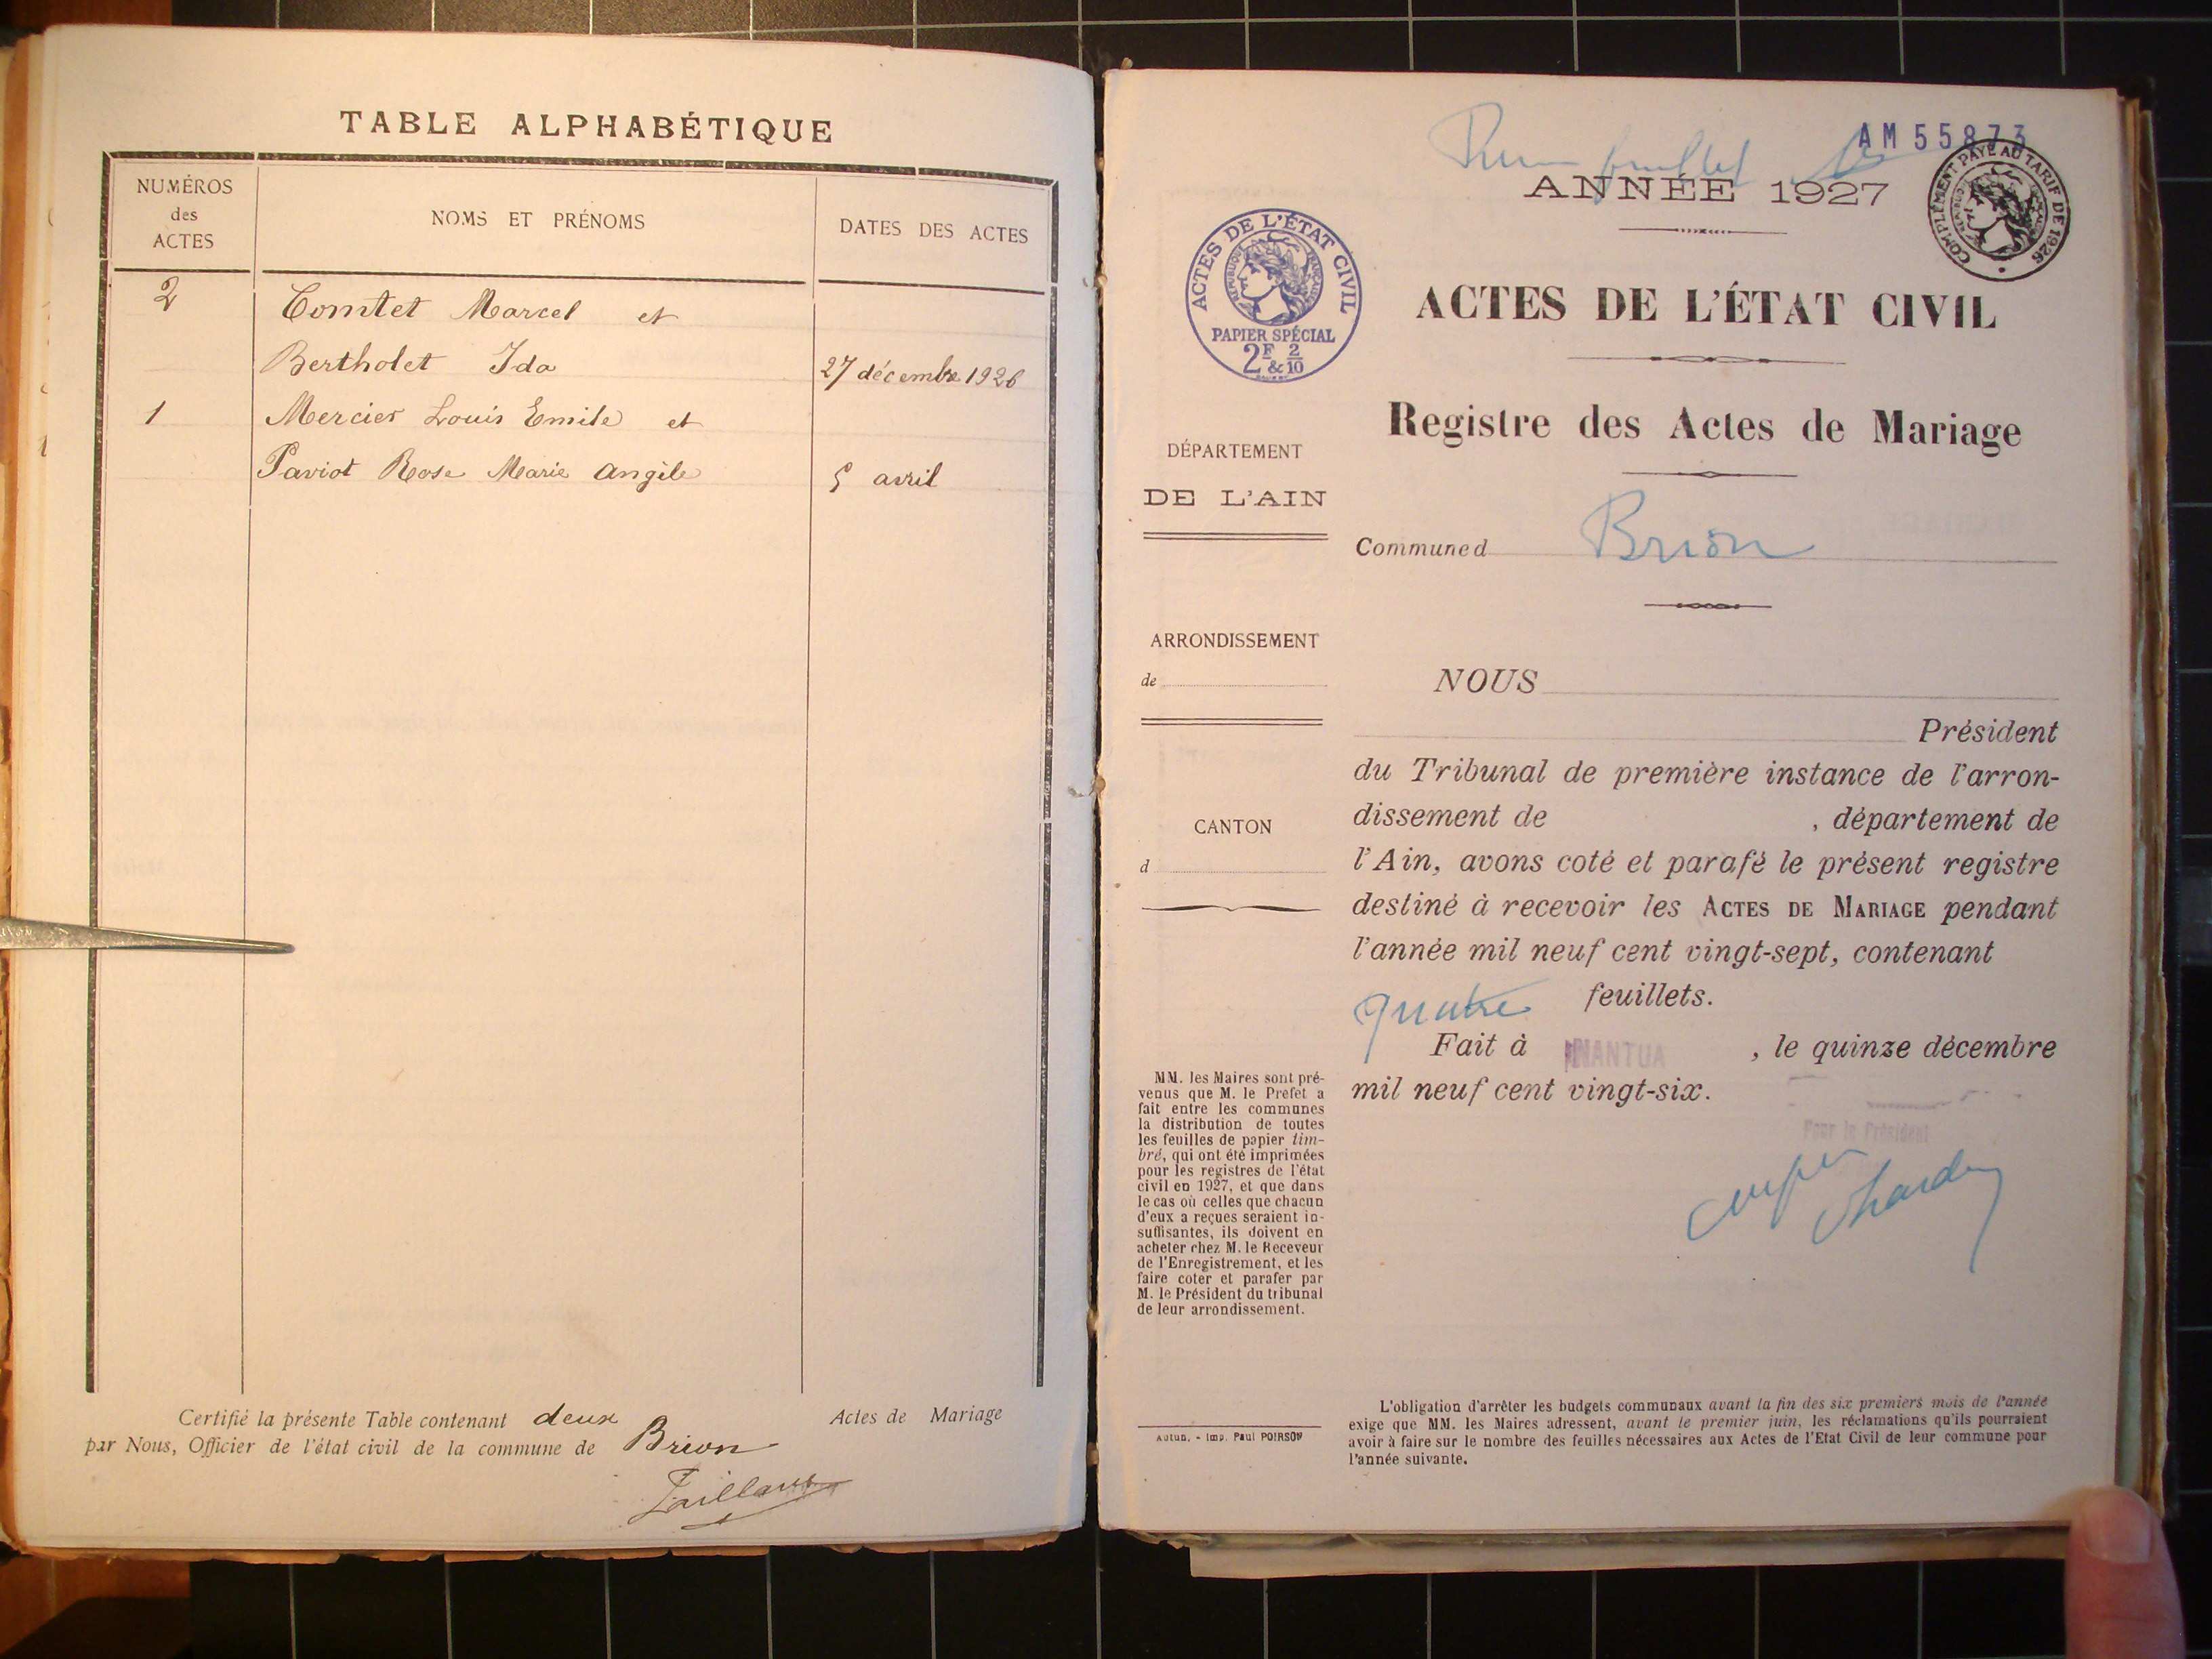 TABLE ALPHABÉTIQUE
NUMÉROS
des
ACTES
NOMS ET PRÉNOMS
DATES DES ACTES
2 Comtet Marcel et
Bertholet Ida 27 décembre 1926
1 Mercier Louis Emile et
Paviot Rose Marie Angèle 5 avril
Certifié la présente Table contenant deux Actes de Mariage
par Nous, Officier de l'état civil de la commune de Brion
AM 55873
feuillet
COMPLÉMENT PAYÉ AU TARIF DE 1926
ANNÉE 1927
ACTES DE L'ÉTAT CIVIL
RÉPUBLIQUE FRANÇAISE
PAPIER SPÉCIAL
2F & 2/10
ACTES DE L'ÉTAT CIVIL
Registre des Actes de Mariage
DÉPARTEMENT
DE L'AIN
Commune d Brion
ARRONDISSEMENT
de
CANTON
d
NOUS
Président
du Tribunal de première instance de l'arron-
dissement de , département de
l'Ain, avons coté et parafé le présent registre
destiné à recevoir les ACTES DE MARIAGE pendant
l'année mil neuf cent vingt-sept, contenant
quatre feuillets.
Fait à NANTUA , le quinze décembre
mil neuf cent vingt-six.
Pour le Président
MM. les Maires sont pré-
venus que M. le Préfet a
fait entre les communes
la distribution de toutes
les feuilles de papier tim-
bré, qui ont été imprimées
pour les registres de l'état
civil en 1927, et que dans
le cas où celles que chacun
d'eux a reçues seraient in-
suffisantes, ils doivent en
acheter chez M. le Receveur
de l'Enregistrement, et les
faire coter et parafer par
M. le Président du tribunal
de leur arrondissement.
Autun. - Imp. Paul POIRSON
L'obligation d'arrêter les budgets communaux avant la fin des six premiers mois de l'année
exige que MM. les Maires adressent, avant le premier juin, les réclamations qu'ils pourraient
avoir à faire sur le nombre des feuilles nécessaires aux Actes de l'Etat Civil de leur commune pour
l'année suivante.